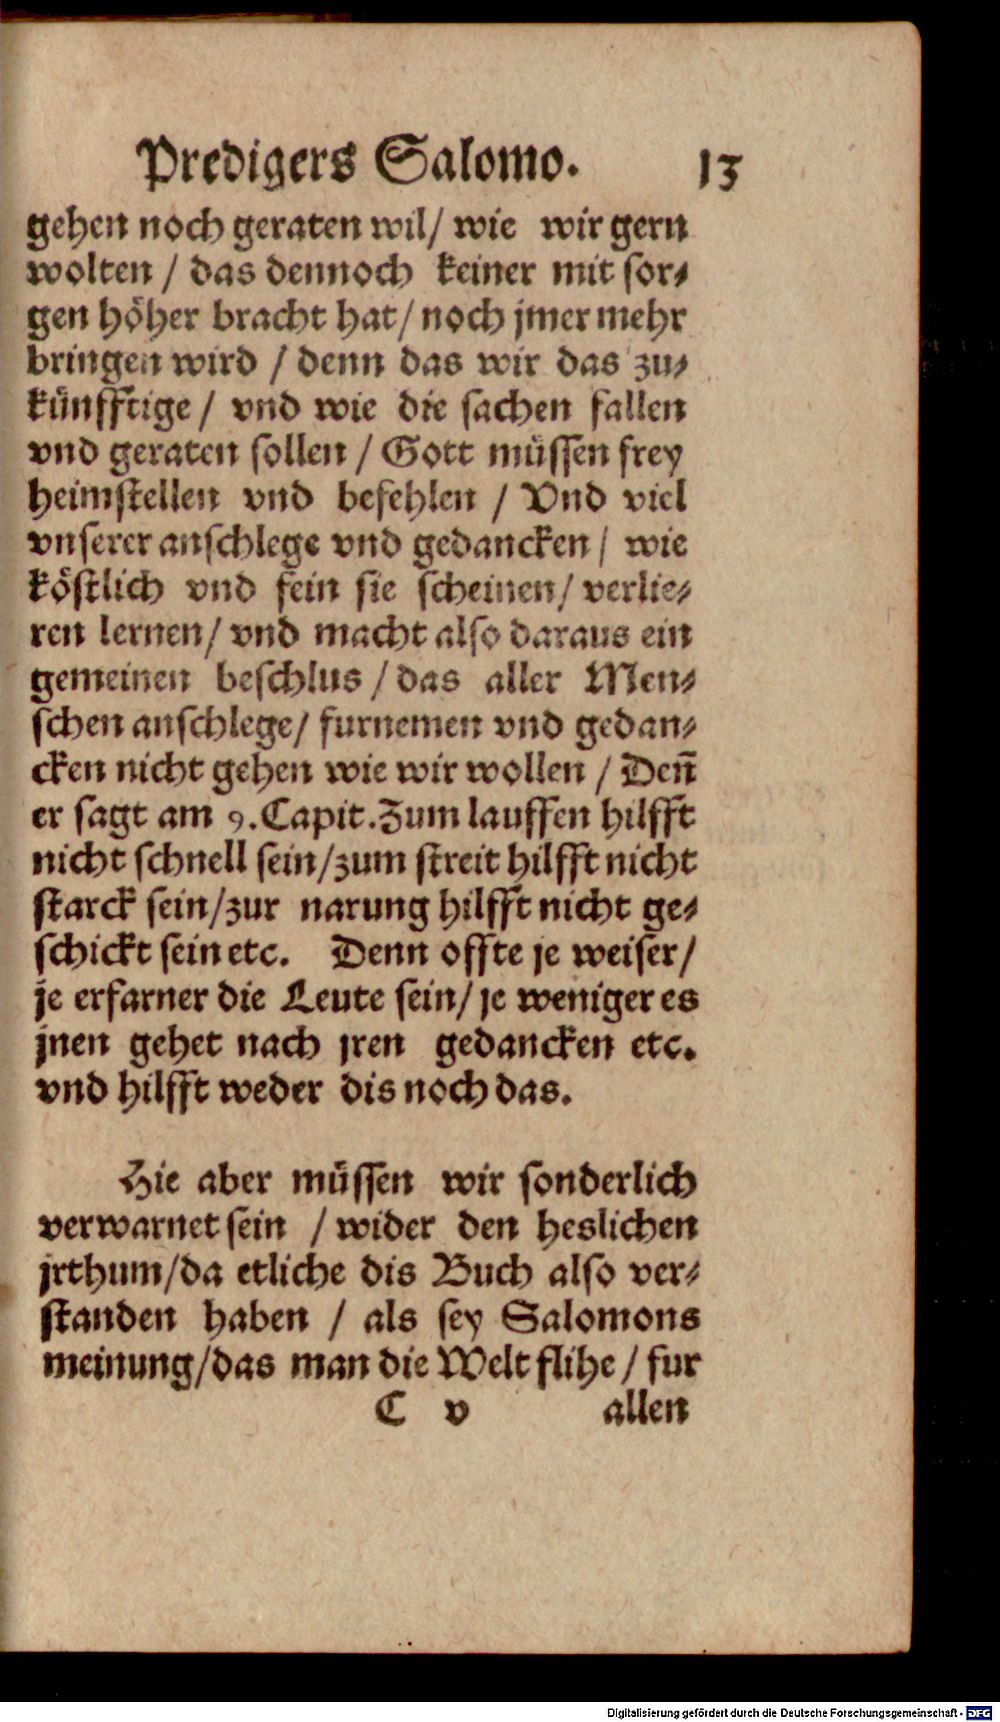 Predigers Salomo. 13
gehen noch geraten wil/ wie wir gern
wolten / das dennoch keiner mit sor⸗
gen höher bracht hat/ noch jmer mehr
bringen wird / denn das wir das zu⸗
künfftige / vnd wie die sachen fallen
vnd geraten sollen / Gott müssen frey
heimstellen vnd befehlen / Vnd viel
vnserer anschlege vnd gedancken / wie
köstlich vnd fein sie scheinen/ verlie⸗
ren lernen/ vnd macht also daraus ein
gemeinen beschlus / das aller Men⸗
schen anschlege/ furnemen vnd gedan⸗
cken nicht gehen wie wir wollen / Den̄
er sagt am 9. Capit. Zum lauffen hilfft
nicht schnell sein/zum streit hilfft nicht
starck sein/zur narung hilfft nicht ge⸗
schickt sein etc. Denn offte je weiser/
je erfarner die Leute sein/ je weniger es
jnen gehet nach jren gedancken etc.
vnd hilfft weder dis noch das.
Hie aber müssen wir sonderlich
verwarnet sein / wider den heslichen
jrthum/da etliche dis Buch also ver⸗
standen haben / als sey Salomons
meinung/das man die Welt flihe / fur
C v allen
Digitalisierung gefördert durch die Deutsche Forschungsgemeinschaft - DFG